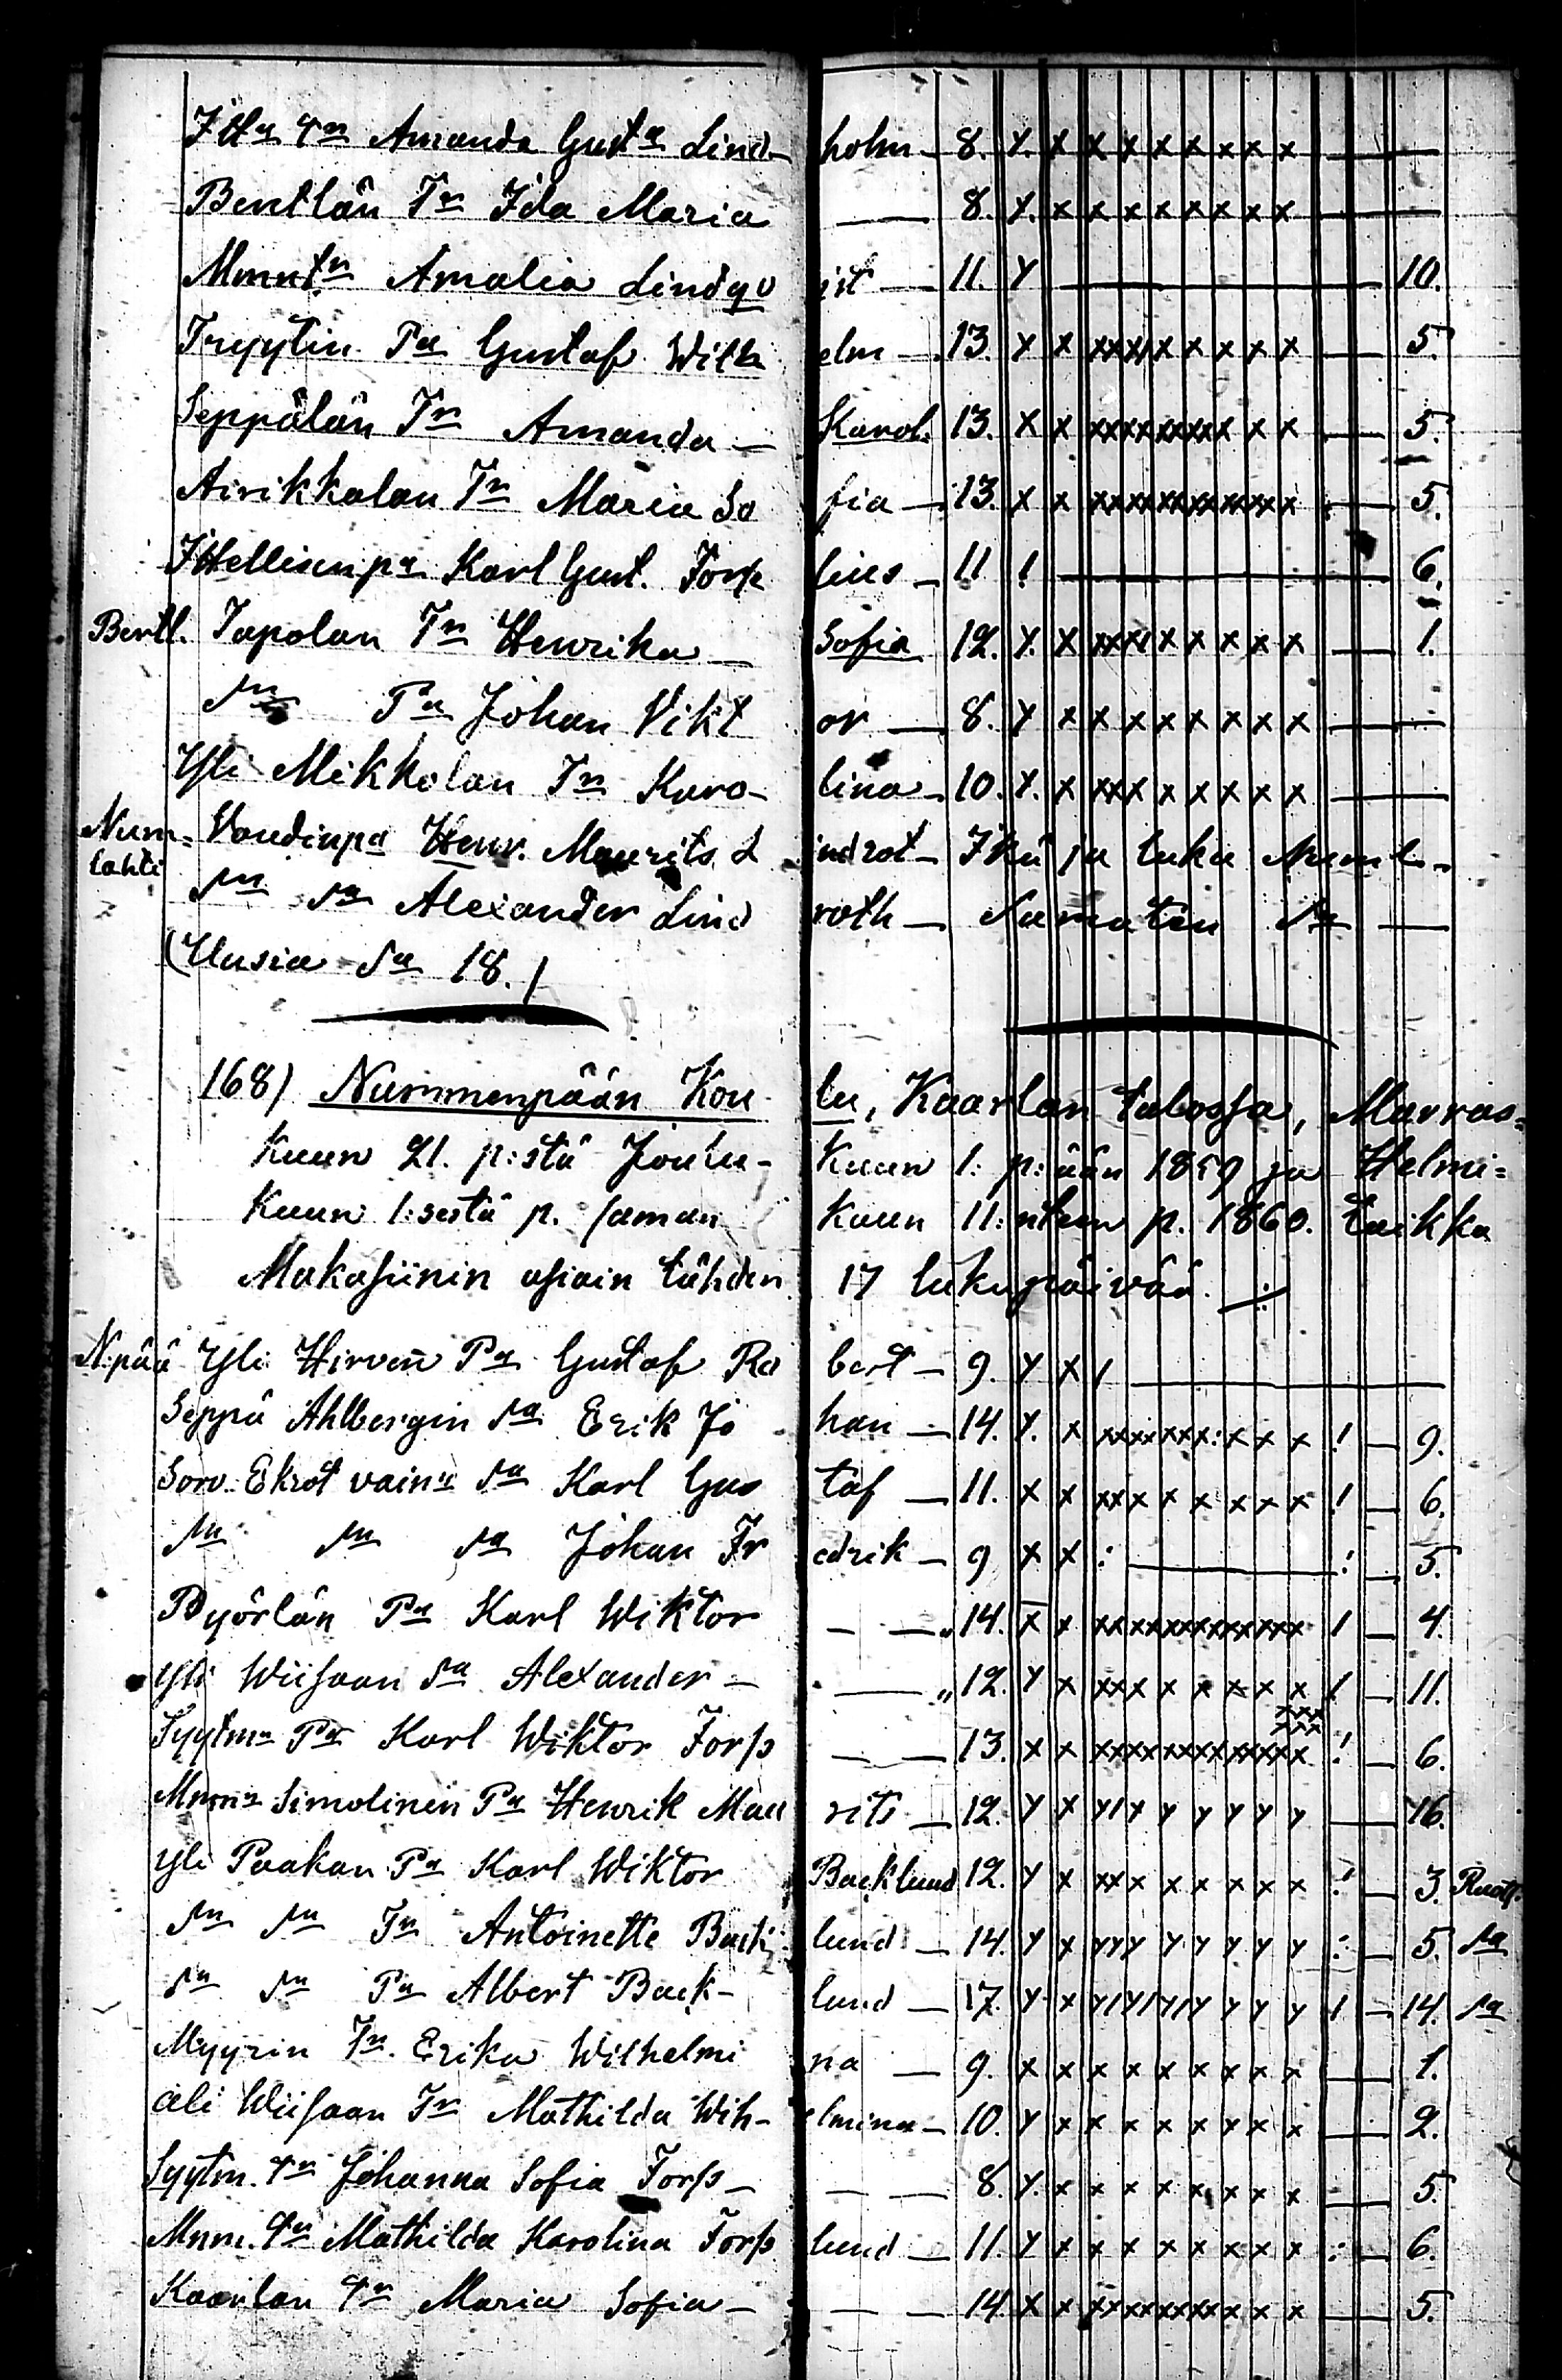 Amanda Gusta Lind- holm - 8. Y. x x x x x x x x
Benttlän Tr Ida Maria — 8. Y. x x x x x x x x
Amalia Lindqv ist — 11. Y — 10.
Pa Gustaf Wilh elm — 13. Y x xxxx x x x x x — 5.
Seppälän Tr Amanda — Karol. 13. x x — 5.
Airikkalan Tr Maria So fia — 13. x x — 5.
Karl Gust. Fors lius — 11 ! — 6.
Bertl. Tapolan Tr Henrika — Sofia 12. Y. x — 1.
sn Pa Johan Vikt or — 8. Y x x x x x x x x —
Yli Mikkolan Tr Karo- lina — 10. Y. x xxx x x x x x —
Num= Voudinpa Henr. Maurits L indrot — Ikä ja luku
lahti sn sa Alexander Lind roth — sa —
(Uusia sa 18.)
168) Nummenpään Kou lu, Kaarlan talossa, Marras=
Kuun 21. p:stä Joulu- Kuun 1: p:ään 1859 ja Helmi=
Kuun 1:sestä p. saman Kuun 11:nteen p. 1860. Taikka
Makasiinin asiain tähden 17 lukupäivää. ÷
N:pää Yli Hirven Pa Gustaf Ro bert — 9. Y x / —
Seppä Ahlbergin sa Erik Jo han — 14. Y. x ! — 9.
Sorv. Ekrot vaina sa Karl Gus taf — 11. x x xxx x x x x x ! — 6.
sn sn sa Johan Fr edrik — 9 x x : — : — 5.
Pyörlän Pa Karl Wiktor — — „ 14. x x ! — 4.
Yli Wiisaan sa Alexander — — „ 12. Y x xxx x x x x x ! — 11.
Pa Karl Wiktor Fors — — 13. x x ! — 6.
Simolinin Pa Henrik Mau rits — 12. Y x y/x y y y y y — 16.
Yli Paakan Pa Karl Wiktor Backlund 12. Y x xxx x x x x x : — 3.
sn sn Tr Antoinette Back lund — 14. Y x yyy y y y y y : — 5. sa
sn sn Pa Albert Back- lund — 17. Y x y/y/y/y y y y ! — 14. sa
Myyrin Tr. Erika Wilhelmi na — 9. x x x x x x x x x — 1.
ali Wiisaan Tr Mathilda Wih- elmina — 10. Y x x x x x x x x — 2.
Johanna Sofia Fors — — — 8. Y. x x x x x x x x — 5.
Mathilda Karolina Fors lund — 11. Y x x x x x x x x : — 6.
Kaarlan Tr Maria Sofia — — — 14. x x — 5.